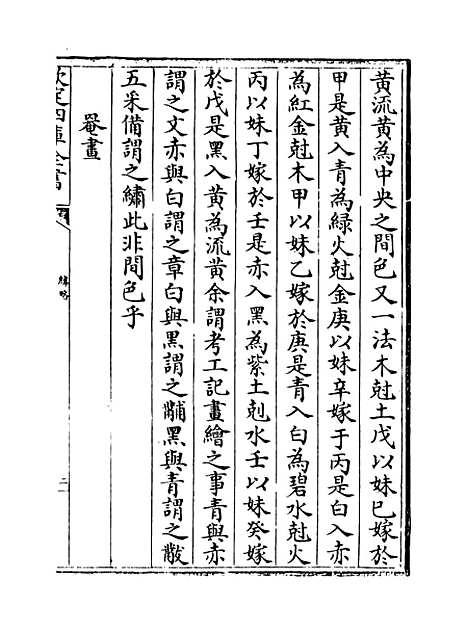 黄流黄為中央之間色又一法木尅土戊以妹已嫁於
甲是黄入青為緑火尅金庚以妹辛嫁于丙是白入赤
為紅金尅木甲以妹乙嫁於庚是青入白為碧水尅火
丙以妹丁嫁於壬是赤入黑為紫土剋水壬以妹癸嫁
於戊是黑入黄為流黄余謂考工記畫繪之事青與赤
謂之文赤與白謂之章白與黑謂之黼黑與青謂之黻
五采備謂之繡此非間色乎
罨畫
欽定四庫全書
緯略
二